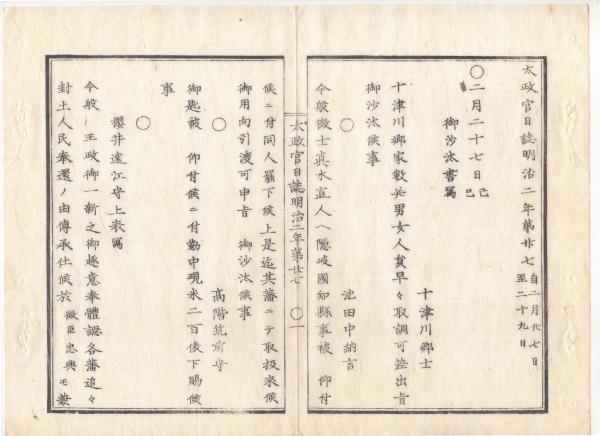 太政官日誌明治二年第廿七 自二月廿七日至二十九日
〇二月二十七日己巳
御沙汰書寫
十津川郷士
十津川郷家數并男女人員早々取調可差出旨
御沙汰候事
〇
池田中納言
今般徴士真木直人ヘ隠岐國知縣事被 仰付
太政官日誌明治二年第廿七 〇一
候ニ付同人罷下候上是迄其藩ニテ取扱來候
御用向引渡可申旨 御沙汰候事
〇
高階筑前守
御匙被 仰付候ニ付勤中現米二百俵下賜候
事
〇
櫻井遠江守上表寫
今般 王政御一新之御趣意奉體認各藩追々
封土人民奉還ノ由傳承仕候於 微臣忠興モ兼